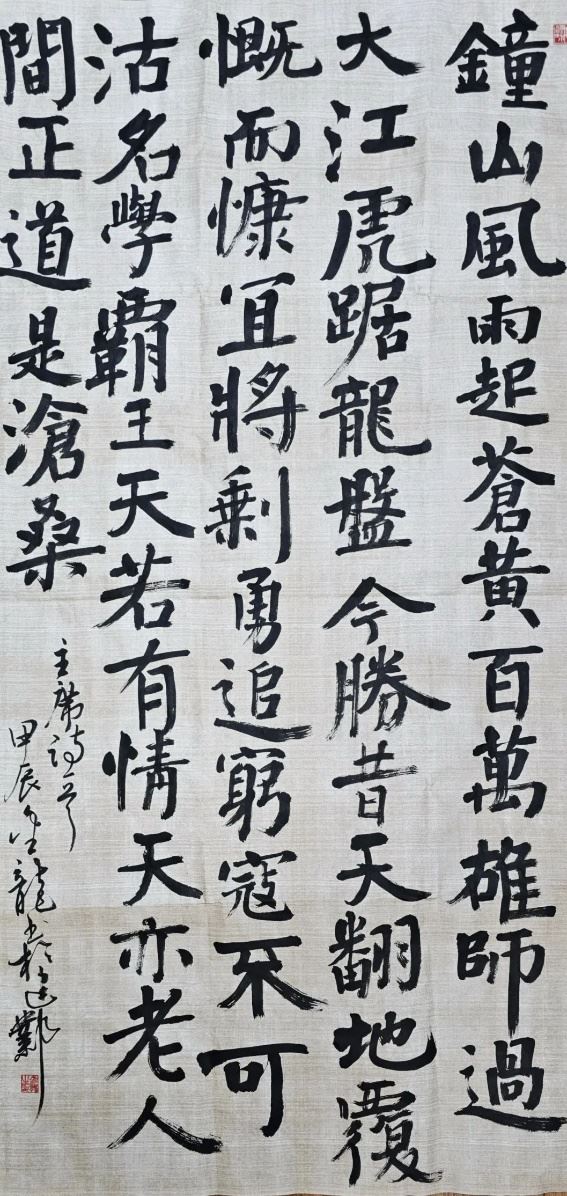 鐘山風雨起蒼黃百萬雄師過
大江虎踞龍盤今勝昔天翻地覆
慨而慷宜將剩勇追窮寇不可
沽名學霸王天若有情天亦老人
間正道是滄桑
主席詩一首
甲辰年金龍書於